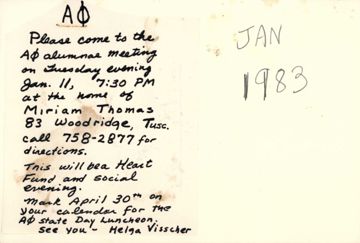 AΦ
Please come to the
AΦ alumnae meeting
on Tuesday evening
Jan. 11, 7:30 PM
at the home of
Miriam Thomas
83 Woodridge, Tusc.
call 758-2877 for
directions.
This will be a Heart
Fund and social
evening.
Mark April 30th on
your calendar for the
AΦ State Day Luncheon.
See you - Helga Visscher
JAN
1983